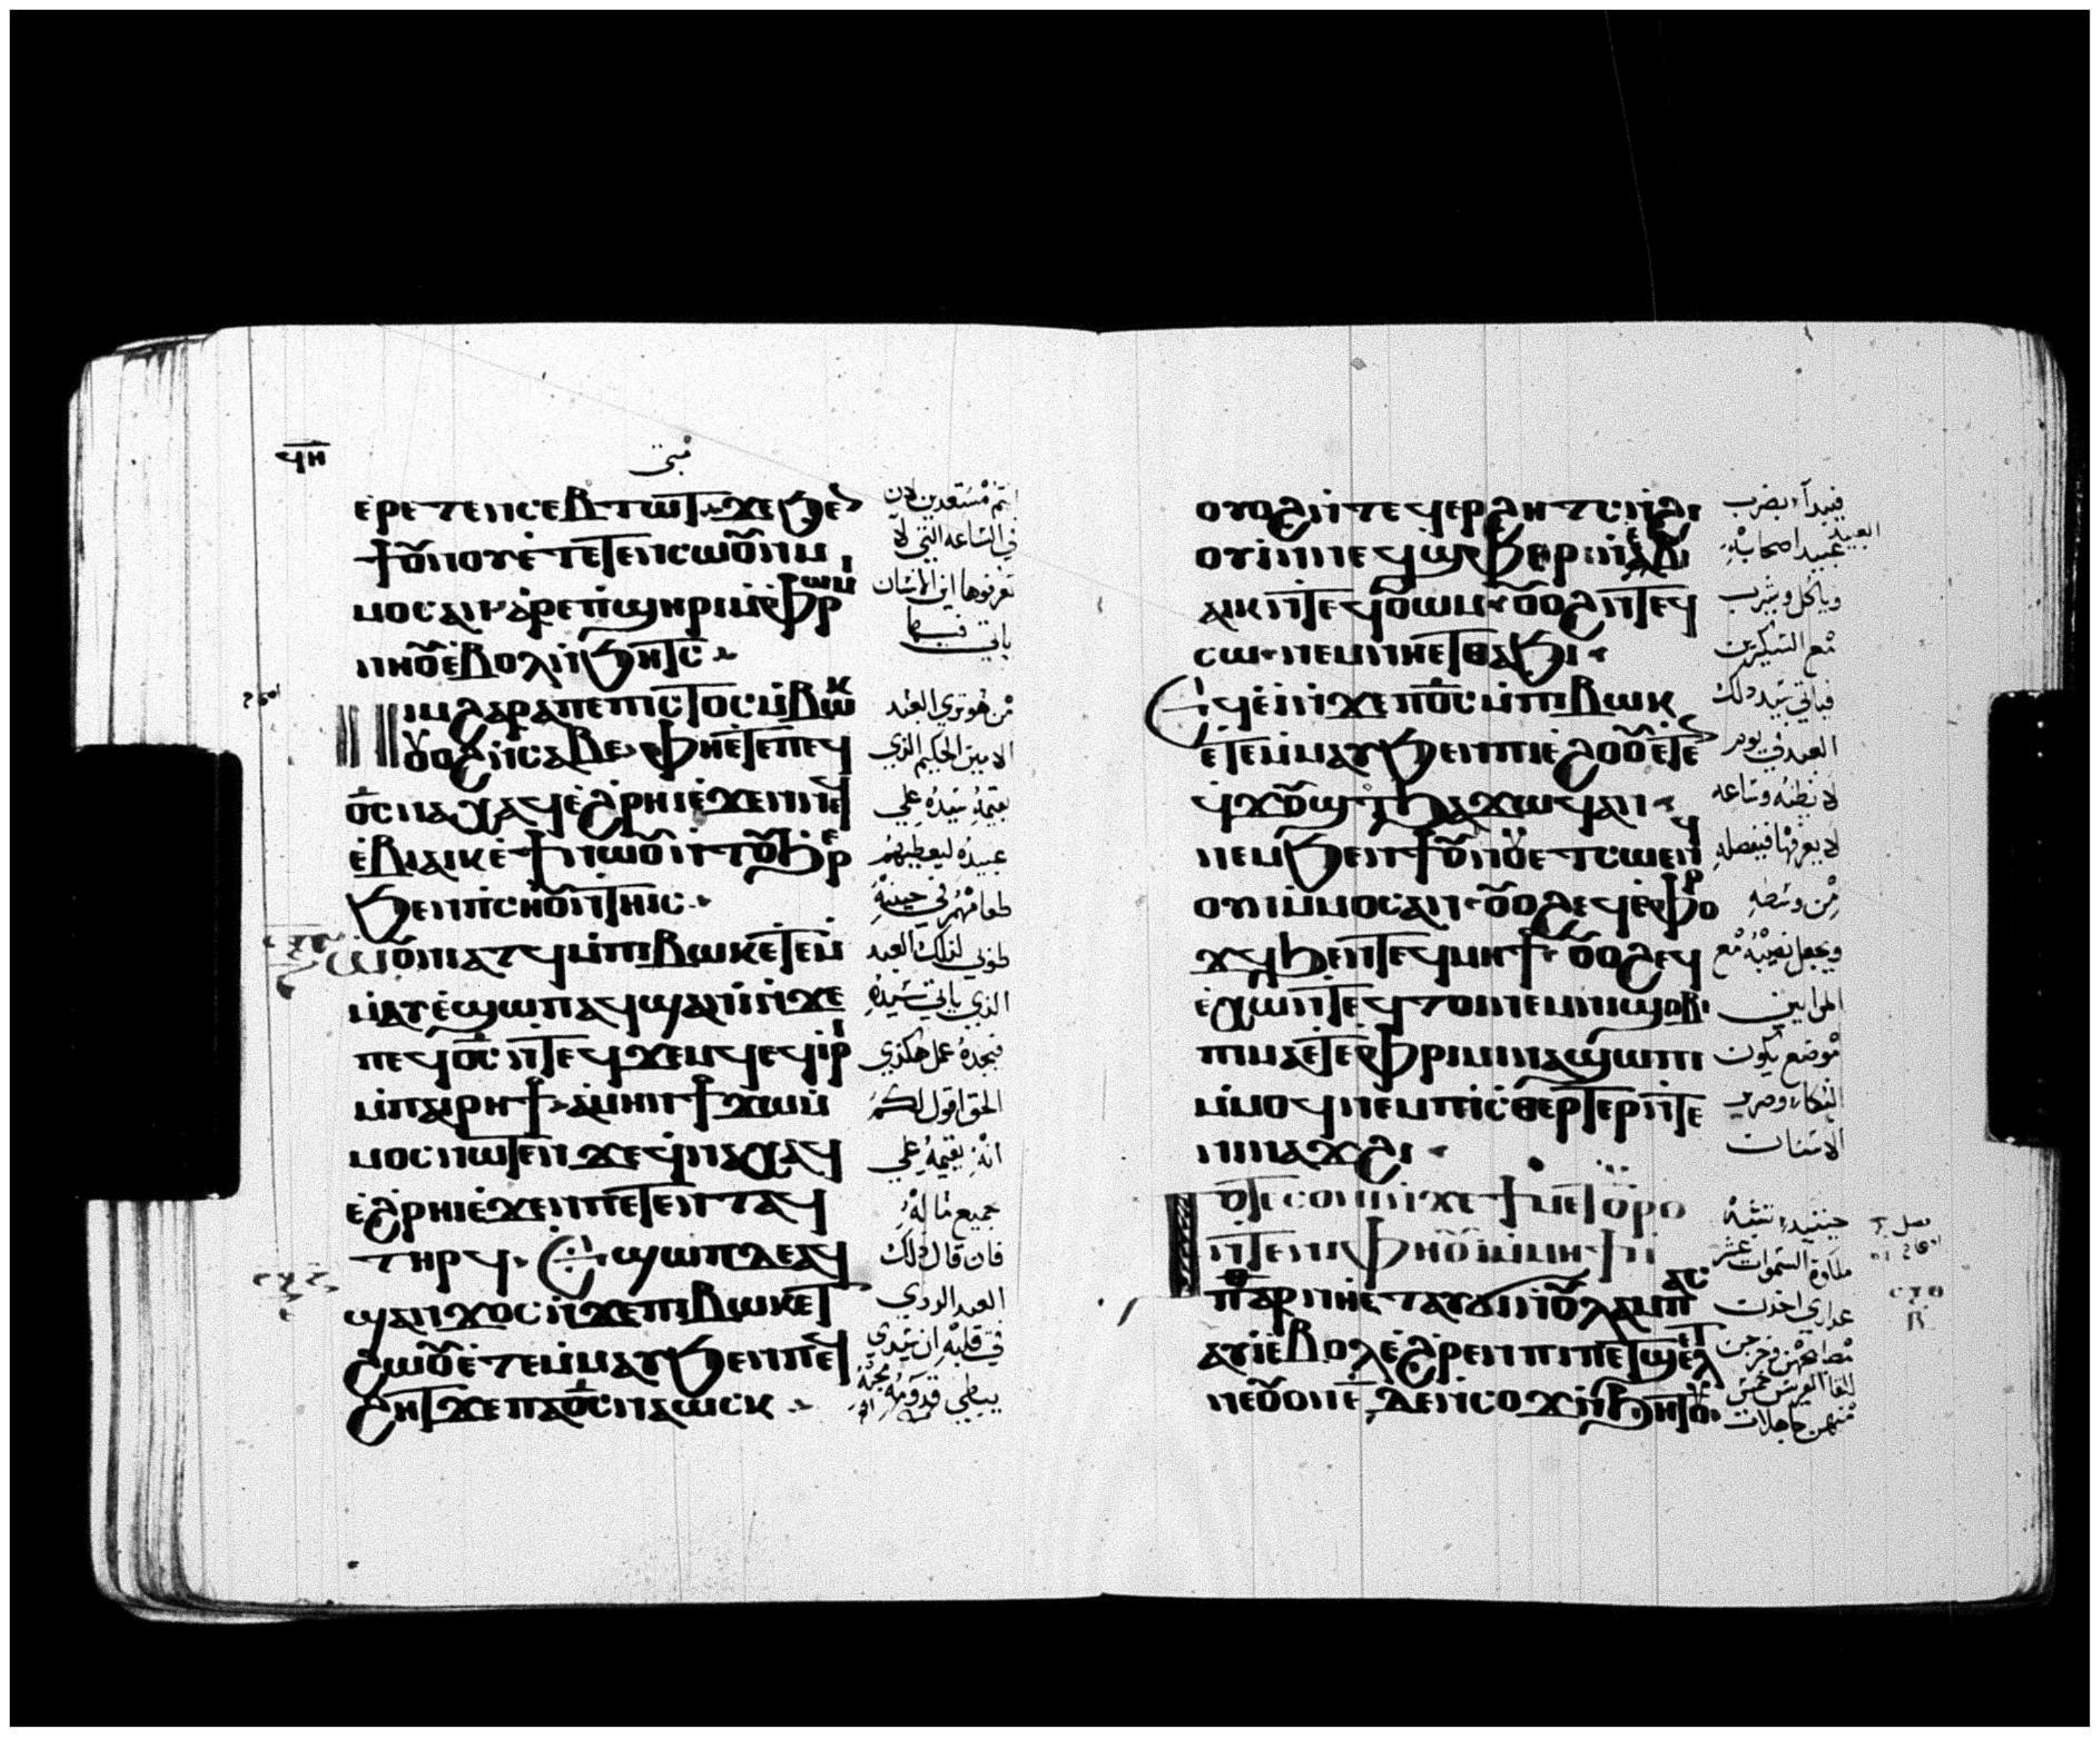 ϥⲏ
متى
ⲉⲣⲉⲧⲉⲛⲥⲉⲃⲧⲱⲧ ϫⲉ ϧⲉⲛ
ϯⲟⲩⲛⲟⲩ ⲉⲧⲉⲧⲉⲛⲥⲱⲟⲩⲛ ⲙ
ⲙⲟⲥ ⲁⲛ ⲁⲣⲉ ⲡϣⲏⲣⲓ ⲙⲫⲣⲱⲙⲓ
ⲛⲏⲟⲩ ⲉⲃⲟⲗ ⲛϧⲏⲧⲥ
ⲛⲓⲙ ϩⲁⲣⲁ ⲡⲉ ⲡⲓⲡⲓⲥⲧⲟⲥ ⲙⲃⲱⲕ
ⲟⲩⲟϩ ⲛⲥⲁⲃⲉ ⲫⲏ ⲉⲧⲉ ⲡⲉϥ
ⲟ̅ⲥ̅ ⲛⲁⲭⲁϥ ⲉϩⲣⲏⲓ ⲉϫⲉⲛ ⲛⲉϥ
ⲉⲃⲓⲁⲓⲕ ⲉϯ ⲛⲱⲟⲩ ⲛⲧⲟⲩϧⲣⲉ
ϧⲉⲛ ⲡⲥⲏⲟⲩ ⲛⲧⲏⲓⲥ
ⲱⲟⲩⲛⲓⲁⲧϥ ⲙⲡⲓⲃⲱⲕ ⲉⲧⲉⲙ
ⲙⲁⲩ ⲉϣⲱⲡ ⲁϥϣⲁⲛⲓ ⲛϫⲉ
ⲡⲉϥⲟ̅ⲥ̅ ⲛⲧⲉϥϫⲉⲙϥ ⲉϥⲓⲣⲓ
ⲙⲡⲁⲓⲣⲏϯ ⲁⲙⲏⲛ ϯϫⲱ ⲙ
ⲙⲟⲥ ⲛⲱⲧⲉⲛ ϫⲉ ϥⲛⲁⲭⲁϥ
ⲉϩⲣⲏⲓ ⲉϫⲉⲛ ⲡⲉⲧⲉⲛⲧⲁϥ
ⲧⲏⲣϥ ⲉϣⲱⲡ ⲇⲉ ⲁϥ
ϣⲁⲛϫⲟⲥ ⲛϫⲉ ⲡⲓⲃⲱⲕ ⲉⲧ
ϩⲱⲟⲩ ⲉⲧⲉⲙⲙⲁⲩ ϧⲉⲛ ⲡⲉϥ
ϩⲏⲧ ϫⲉ ⲡⲁⲟ̅ⲥ̅ ⲛⲁⲱⲥⲕ
انتم مستعدين لان
في الساعه التي لا
تعرفوها ابن الانسان
ياتي فيها
من هو تري العبد
الامين الحكيم الذي
يقيمه سيده علي
عبيده ليعطيهم
طعامهم في حينه
طوبي لذلك العبد
الذي ياتي سيده
فيجده عمل هكذي
الحق اقول لكم
انه يقيمه علي
جميع ماله
فان قال ذلك
العبد الردي
في قلبه ان سيدي
يبطي قدومه
ⲟⲩⲟϩ ⲛⲧⲉϥⲉⲣϩⲏⲧⲥ ⲛϩⲓ
ⲟⲩⲓ ⲛⲛⲉϥϣⲫⲏⲣ ⲛⲉⲃⲓ
ⲁⲓⲕ ⲛⲧⲉϥⲟⲩⲱⲙ ⲟⲩⲟϩ ⲛⲧⲉϥ
ⲥⲱ ⲛⲉⲙ ⲛⲏ ⲉⲧⲑⲁϧⲓ
ⲉϥⲉⲓ ⲛϫⲉ ⲡⲟ̅ⲥ̅ ⲙⲡⲓⲃⲱⲕ
ⲉⲧⲉⲙⲙⲁⲩ ϧⲉⲛ ⲡⲓⲉϩⲟⲟⲩ ⲉⲧⲉ
ϥϫⲟⲩϣⲧ ϧⲁϫⲱϥ ⲁⲛ
ⲛⲉⲙ ϧⲉⲛ ϯⲟⲩⲛⲟⲩ ⲉⲧⲉϥⲥⲱ
ⲟⲩⲛ ⲙⲙⲟⲥ ⲁⲛ ⲟⲩⲟϩ ⲉϥⲉⲫⲟⲣ
ϫϥ ϧⲉⲛ ⲧⲉϥⲙⲏϯ ⲟⲩⲟϩ ⲉϥ
ⲉⲭⲱ ⲛⲧⲉϥⲧⲟⲓ ⲛⲉⲙ ⲛⲓϣⲟⲃⲓ
ⲡⲓⲙⲁ ⲉⲧⲉ ⲫⲣⲓⲙⲓ ⲛⲁϣⲱⲡⲓ
ⲙⲙⲟϥ ⲛⲉⲙ ⲡⲓⲥⲑⲉⲣⲧⲉⲣ ⲛⲧⲉ
ⲛⲓⲛⲁϫϩⲓ
ⲧⲟⲧⲉ ⲥⲟⲛⲓ ⲛϫⲉ ϯⲙⲉⲧⲟⲩⲣⲟ
ⲛⲧⲉ ⲛⲓⲫⲏⲟⲩⲓ ⲙⲙⲏϯ
ⲙⲡⲁⲣⲑⲉⲛⲟⲥ ⲉⲧⲁⲩϭⲓ ⲛⲛⲟⲩⲗⲁⲙⲡⲁⲥ
ⲁⲩⲓ ⲉⲃⲟⲗ ⲉϩⲣⲉⲛ ⲡⲓⲡⲁⲧϣⲉⲗⲉⲧ
ⲛⲉ ⲟⲩⲟⲛ ⲉ ⲇⲉ ⲛⲥⲟϫ ⲛϧⲏⲧⲟⲩ
فيبدا يضرب
العبيد
عبيد اصحابه
وياكل ويشرب
مع السكيرين
فياتي سيد ذلك
العبد في يوم
لا يظنه وساعه
لا يعرفها فيفصله
من وسطه
ويجعل نصيبه مع
المرايين
موضع يكون
البكاء وصرير
الاسنان
حينيد تشبه
ملكوة السموات عشر
عداري اخدت
مصابيحهن وخرجن
للقا العريس خمس
منهن جاهلات
فصل